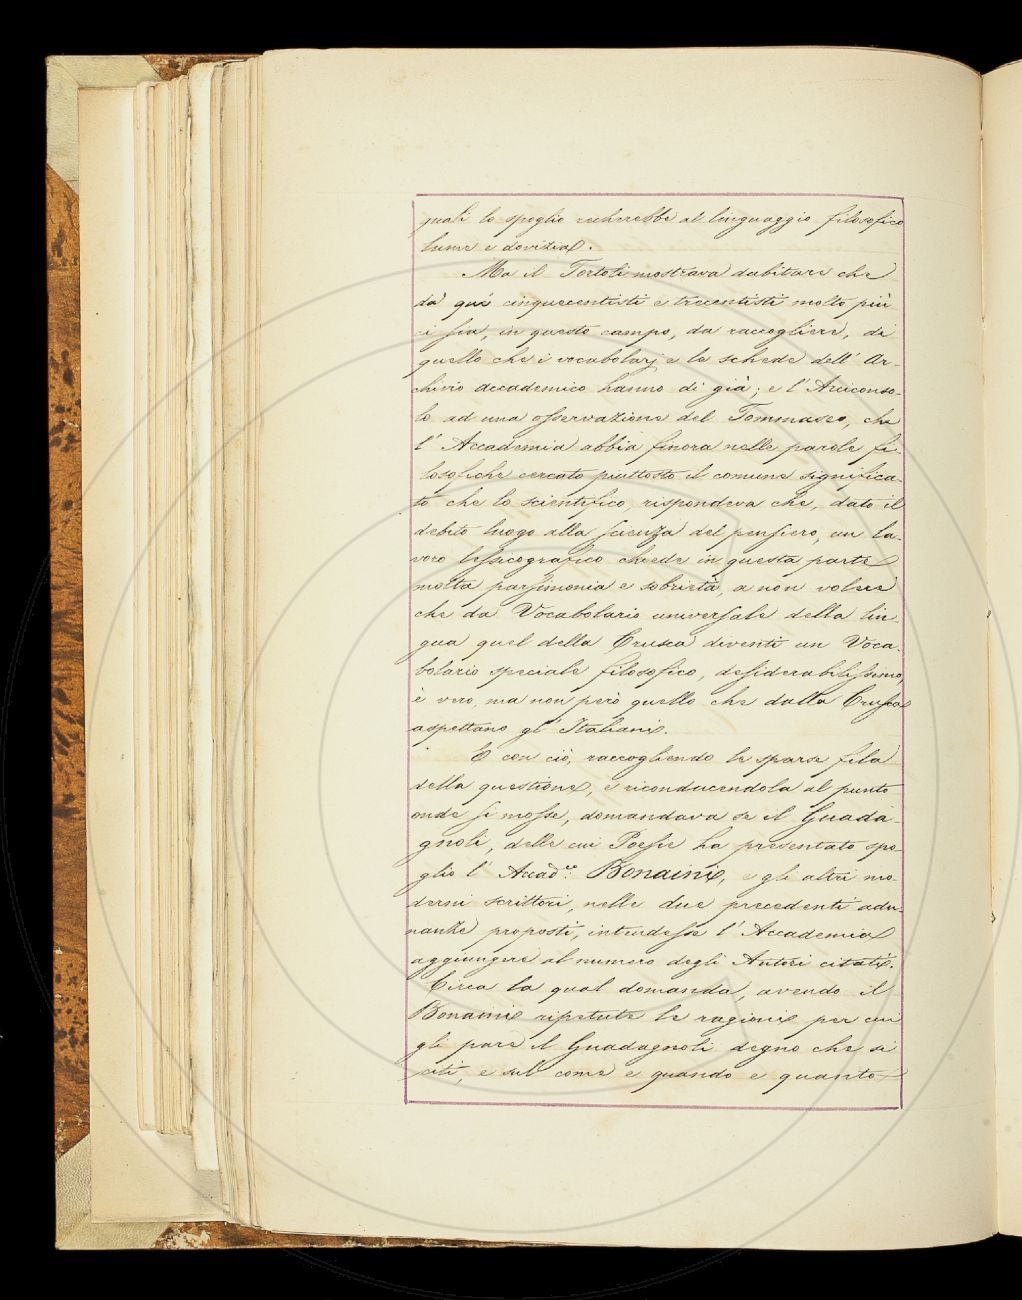 quali lo spoglio recherebbe al linguaggio filosofico
lume e dovizia.
Ma il Tortoli mostrava dubitare che
da que' cinquecentisti e trecentisti molto più
ci sia, in questo campo, da raccogliere, di
quello che i vocabolarj e le schede dell' Ar-
chivio accademico hanno di già; e l'Arciconso-
lo ad una osservazione del Tommaseo, che
l'Accademia abbia finora nelle parole fi-
losofiche cercato piuttosto il comune significa-
to che lo scientifico, rispondeva che, dato il
debito luogo alla scienza del pensiero, un la-
voro lessicografico chiede in questa parte
molta parsimonia e sobrietà, a non volere
che da Vocabolario universale della lin-
gua quel della Crusca diventi un Voca-
bolario speciale filosofico, desiderabilissimo,
è vero, ma non però quello che dalla Crusca
aspettano gl' Italiani.
E con ciò, raccogliendo le sparse fila
della questione, e riconducendola al punto
onde si mosse, domandava se il Guada-
gnoli, delle cui Poesie ha presentato spo-
glio l'Accad.co Bonaini, e gli altri mo-
derni scrittori, nelle due precedenti adu-
nanze proposti, intendesse l'Accademia
aggiungere al numero degli Autori citati.
Circa la qual domanda, avendo il
Bonaini ripetute le ragioni per cui
gli pare il Guadagnoli degno che si
citi, e sul come e quando e quanto